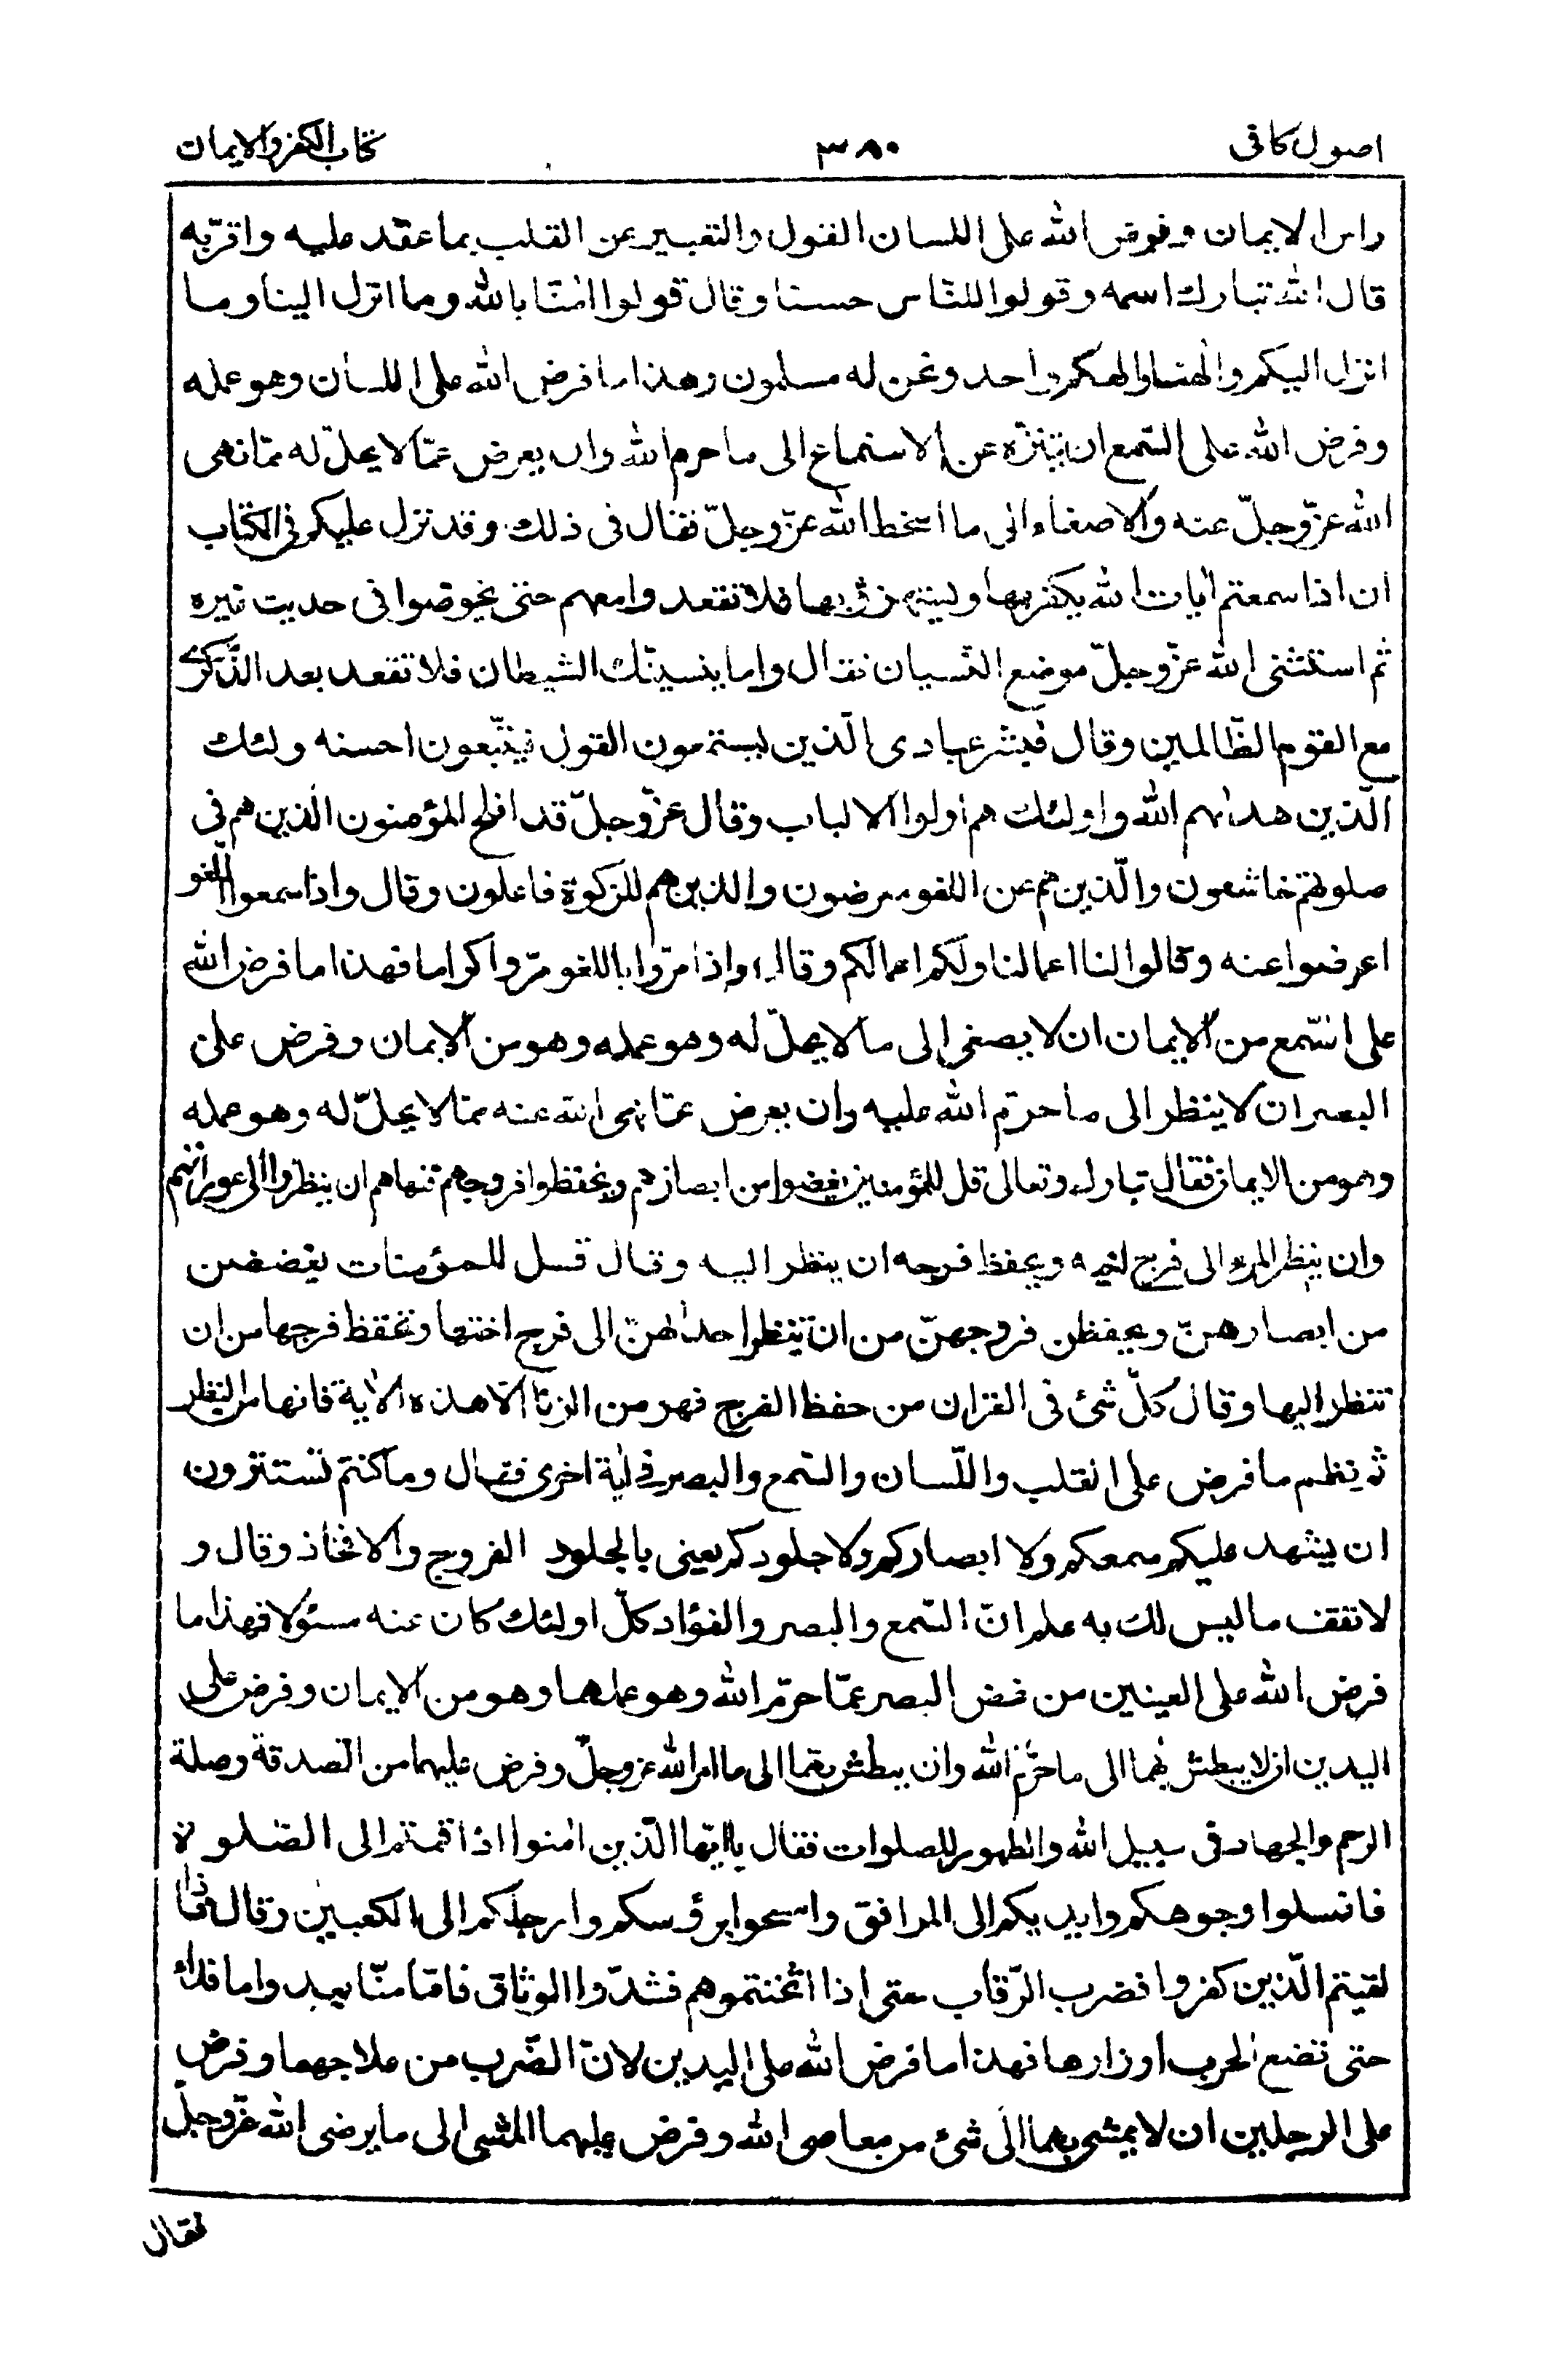 اصول كافى ٣٨٠ كتاب الكفر والايمان
راس الايمان وفرض الله على اللسان القول والتعبير عن القلب بما عقد عليه واقرّ به
قال الله تبارك اسمه وقولوا للنّاس حسنا وقال قولوا امنّا بالله وما انزل الينا وما
انزل اليكم والٰهنا والهكم واحد ونحن له مسلمون وهذا ما فرض الله على اللسان وهو عمله
وفرض الله على السّمع ان يتنزّه عن الاستماع الى ما حرم الله وان يعرض عمّا لا يحلّ له ممّا نهى
الله عزّ وجلّ عنه والاصغاء الى ما اسخط الله عزّ وجلّ فقال فى ذلك وقد نزل عليكم فى الكتاب
ان اذا سمعتم اٰيات الله يكفر بها ويستهزئ بها فلا تقعدوا معهم حتى يخوضوا فى حديث غيره
ثم استثنى الله عزّ وجلّ موضع النّسيان فقال واما ينسينّك الشيطان فلا تقعد بعد الذّكرى
مع القوم الظّالمين وقال فبشر عبادى الّذين يستمعون القول فيتّبعون احسنه ولئك
الّذين هداٰيهم الله واولئك هم اولوا الالباب وقال عزّ وجلّ قد افلح المؤمنون الّذين هم فى
صلوتهم خاشعون والّذين هم عن اللغو معرضون والذين هم للزكوة فاعلون وقال واذا سمعوا اللّغو
اعرضوا عنه وقالوا لنا اعمالنا ولكم اعمالكم وقال واذا مرّوا باللغو مرّوا كراما فهذا ما فرض الله
على السّمع من الايمان ان لا يصغى الى ما لا يحلّ له وهو عمله وهو من الايمان وفرض على
البصر ان لا ينظر الى ما حرّم الله عليه وان يعرض عمّا نهى الله عنه ممّا لا يحلّ له وهو عمله
وهو من الايمان فقال تبارك وتعالى قل للمؤمنين يغضوا من ابصارهم ويحفظوا فروجهم فنهاهم ان ينظروا الى عوراتهم
وان ينظر المرء الى فرج اخيه ويحفظ فرجه ان ينظر اليه وقال قل للمؤمنات يغضضن
من ابصارهنّ ويحفظن فروجهنّ من ان تنظر احداٰهنّ الى فرج اختها وتحفظ فرجها من ان
تنظر اليها وقال كلّ شئ فى القران من حفظ الفرج فهو من الزنا الّا هذه الاٰية فانها من النظر
ثم نظم ما فرض على القلب واللّسان والسّمع والبصر فى اٰية اخرى فقال وما كنتم تستترون
ان يشهد عليكم سمعكم ولا ابصاركم ولا جلودكم يعنى بالجلود الفروج والافخاذ وقال و
لا تقف ما ليس لك به علم انّ السّمع والبصر والفؤاد كلّ اولئك كان عنه مسئولا فهذا ما
فرض الله على العينين من غض البصر عمّا حرّم الله وهو عملهما وهو من الايمان وفرض على
اليدين ان لا يبطش بهما الى ما حرّم الله وان يبطش بهما الى ما امر الله عز وجلّ وفرض عليهما من الصدقة وصلة
الرحم والجهاد فى سبيل الله والطهور للصلوات فقال يا ايّها الّذين امنوا اذا قمتم الى الصّلوة
فاغسلوا وجوهكم وايديكم الى المرافق وامسحوا برؤسكم وارجلكم الى الكعبين وقال فاذا
لقيتم الّذين كفروا فضرب الرّقاب حتى اذا اثخنتموهم فشدّوا الوثاق فامّا منّا بعد واما فداء
حتى تضع الحرب اوزارها فهذا ما فرض الله على اليدين لانّ الضّرب من علاجهما وفرض
على الرجلين ان لا يمشى بهما الى شئ من معاصى الله وفرض عليهما المشى الى ما يرضى الله عزّ وجلّ
فقال